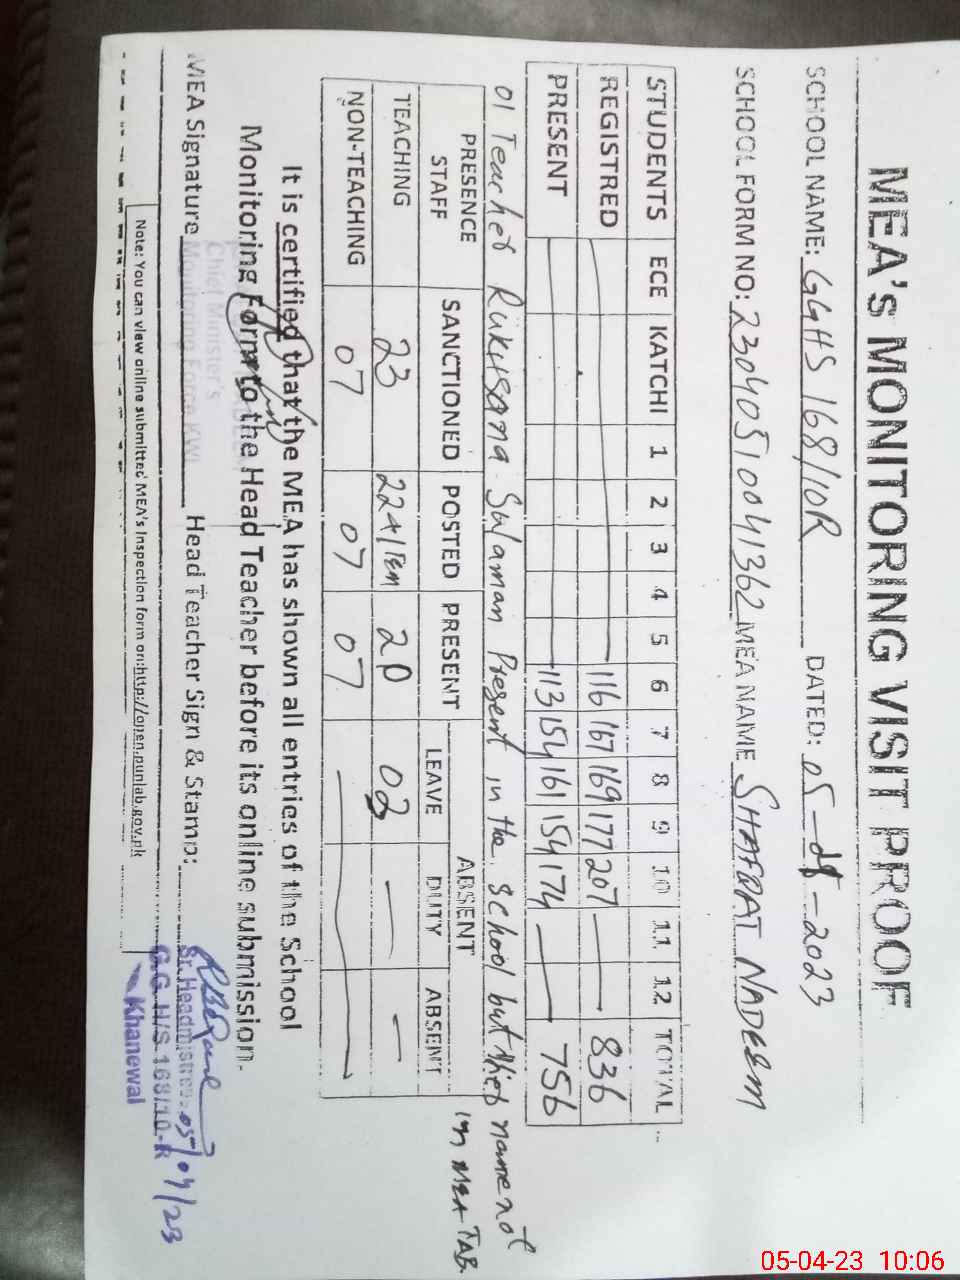 MEA's MONITORING VISIT PROOF
SCHOOL NAME: GGHS 168/10R DATED: 05-04-2023
SCHOOL FORM NO: 23040510041362 MEA NAME SHAFQAT NADEEM
STUDENTS ECE KATCHI 1 2 3 4 5 6 7 8 9 10 11 12 TOTAL
REGISTRED 116 167 169 177 207 — 836
PRESENT 113 154 161 154 174 — 756
01 Teacher Rukhsana Sulaman Present in the School but their name not
in MEA TAB.
PRESENCE STAFF SANCTIONED POSTED PRESENT ABSENT
LEAVE DUTY ABSENT
TEACHING 23 22+1Tem 20 02 — —
NON-TEACHING 07 07 07 —
It is certified that the MEA has shown all entries of the School
Monitoring Form to the Head Teacher before its online submission.
Chief Minister's
Monitoring Force KWL
MEA Signature Head Teacher Sign & Stamp:
Sr. Headmistress 05/04/23
G.G.H/S 168/10-R
Khanewal
Note: You can view online submitted MEA's Inspection form on:http://open.punjab.gov.pk
05-04-23 10:06